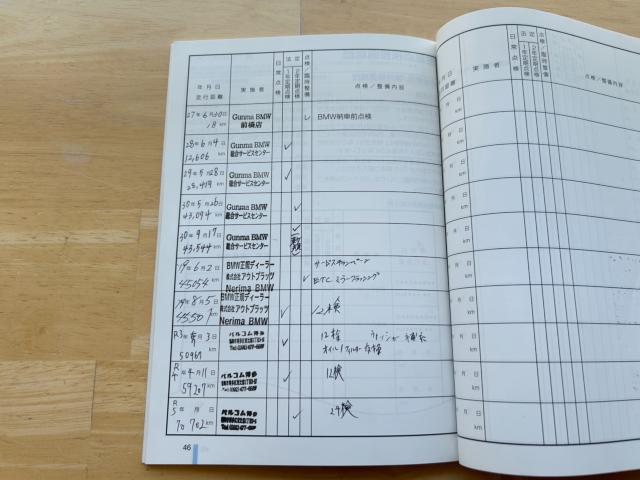 年月日
走行距離
実施者
日常点検
法定
1年定期点検
2年定期点検
点検/臨時整備
点検/整備内容
27年6月30日
18 km
Gunma BMW
前橋店
BMW納車前点検
28年6月4日
12,606 km
Gunma BMW
総合サービスセンター
29年5月28日
25,419 km
Gunma BMW
総合サービスセンター
30年5月26日
43,094 km
Gunma BMW
総合サービスセンター
30年9月17日
43,544 km
Gunma BMW
総合サービスセンター
19年6月2日
45054 km
BMW正規ディーラー
株式会社アウトプラッツ
Nerima BMW
サービスキャンペーン
ETC ミラーフラッシング
年8月5日
45507 km
BMW正規ディーラー
株式会社アウトプラッツ
Nerima BMW
12検
R3年 月3日
50967 km
バルコム博多
12検
R4年4月11日
59207 km
バルコム博多
12検
R5年 月 日
70702 km
バルコム博多
24検
46
月日
距離
実施者
日常点検
法定
1年定期点検
2年定期点検
点検/臨時整備
点検/整備内容
月 日
km
月 日
km
月 日
km
月 日
km
月 日
km
月 日
km
月 日
km
月 日
km
年 月 日
km
年 月 日
km